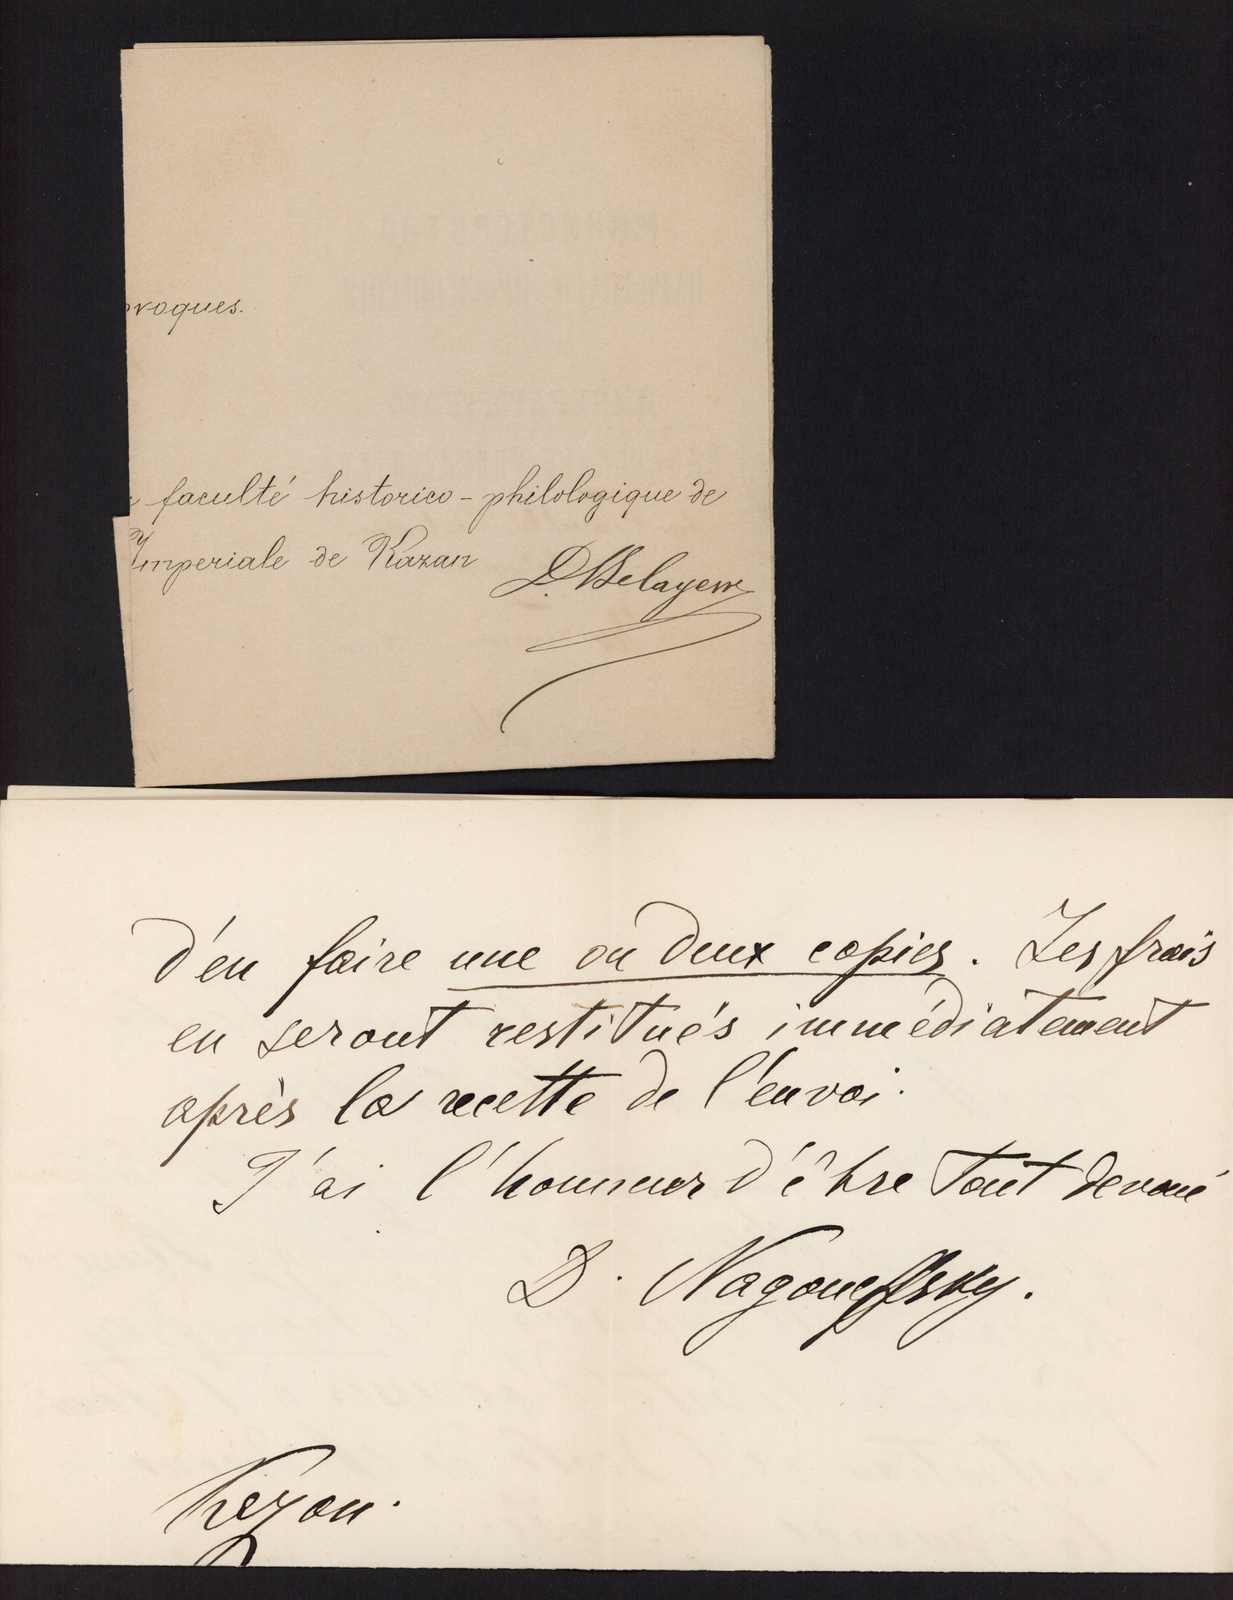 roques.
faculté historico-philologique de
Imperiale de Kazan
D. Belayew
d'en faire une ou deux copies. Les frais
en seront restitués immédiatement
après la recette de l'envoi.
J'ai l'honneur d'être tout devoué
D. Nagoueffsky.
Kazan.